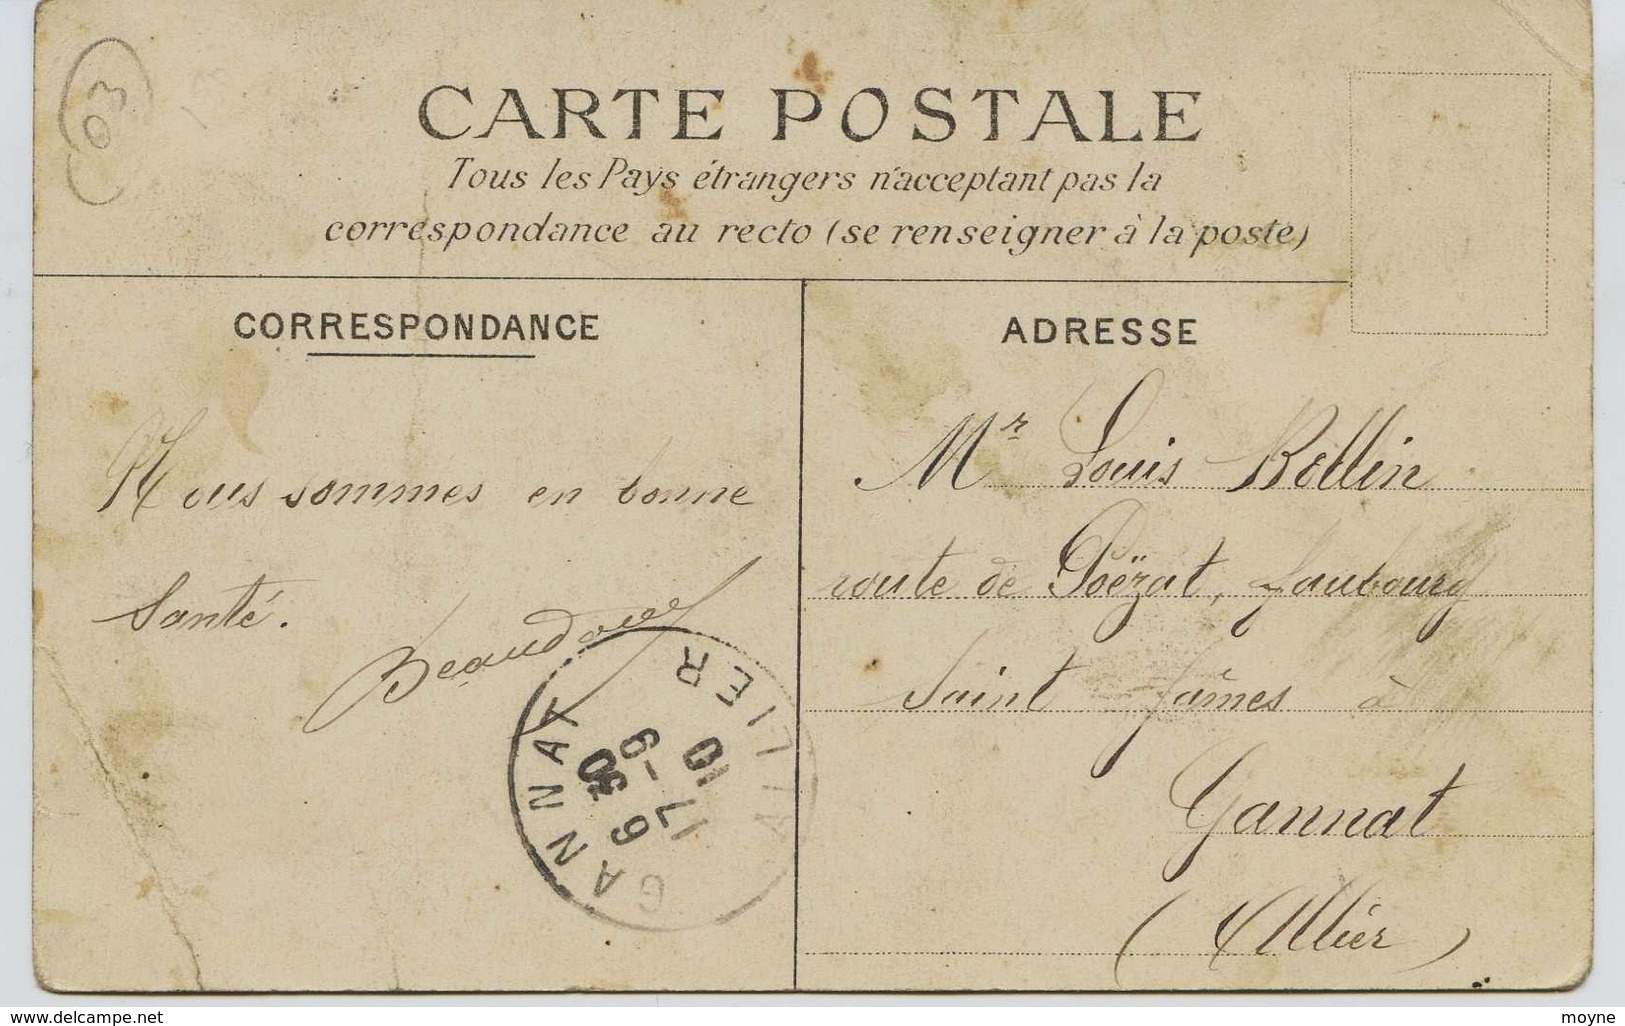 03
CARTE POSTALE
Tous les Pays étrangers n'acceptant pas la
correspondance au recto (se renseigner à la poste)
CORRESPONDANCE
Nous sommes en bonne
Santé.
ADRESSE
Mr Louis Rollin
route de Poëzat, faubourg
Saint James à
Gannat
(Allier)
GANNAT
ALLIER
6 30
9-7
10
www.delcampe.net
moyne